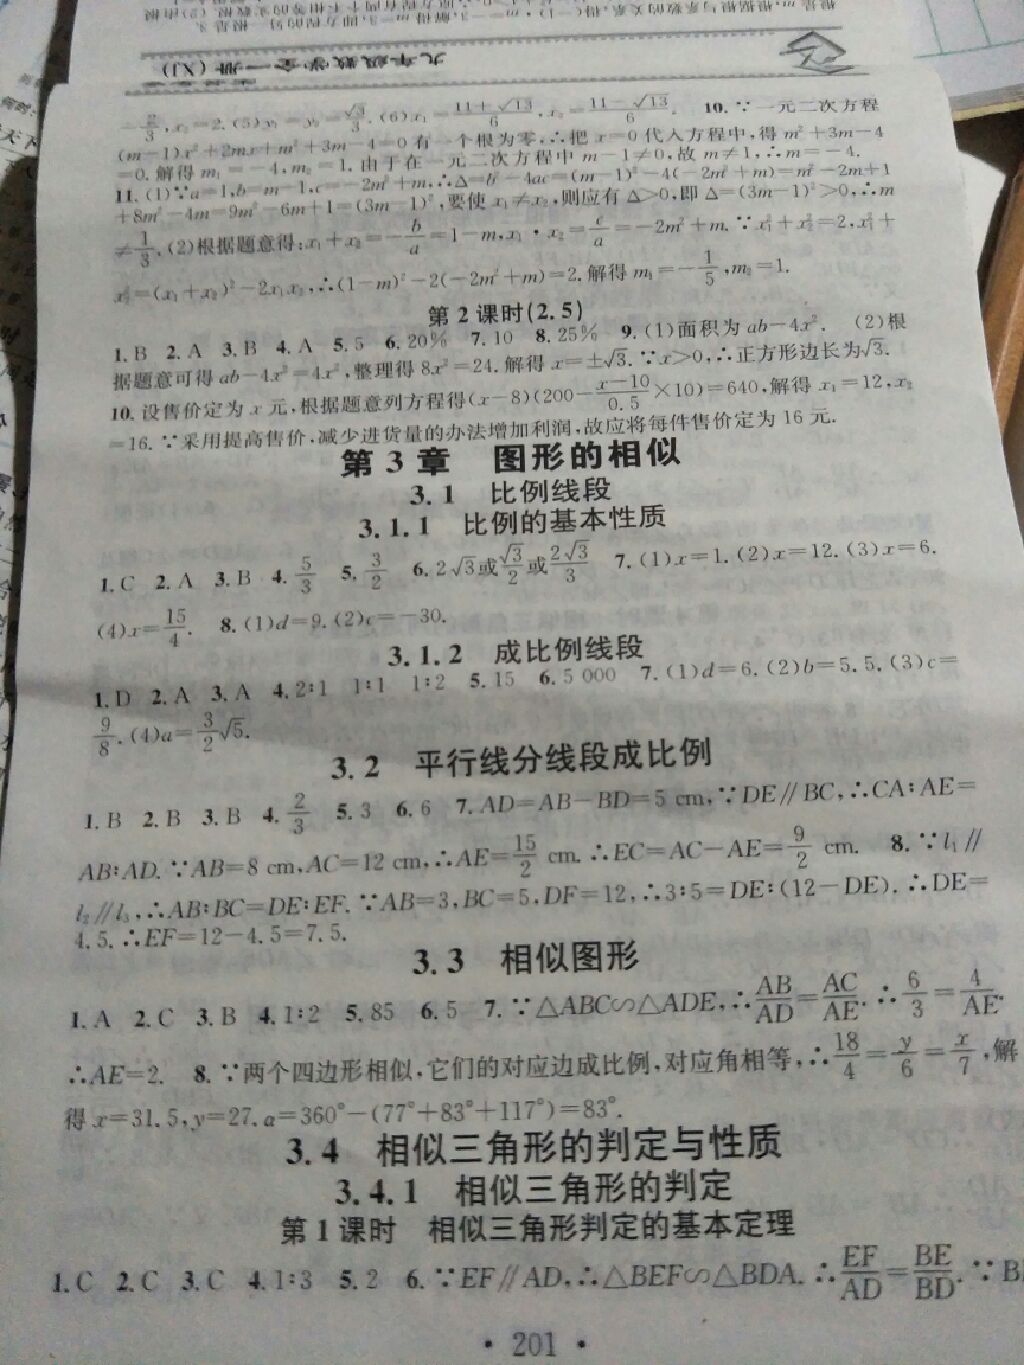 九年级数学全一册(XJ)
—2/3,x₂=2.(5)y₁=y₂=√3/3.(6)x₁=(11+√13)/6,x₂=(11-√13)/6. 10.∵一元二次方程
(m-1)x²+2mx+m²+3m-4=0有一个根为零,∴把x=0代入方程中,得m²+3m-4
=0.解得m₁=-4,m₂=1.由于在一元二次方程中m-1≠0,故m≠1,∴m=-4.
11.(1)∵a=1,b=m-1,c=-2m²+m,∴Δ=b²-4ac=(m-1)²-4(-2m²+m)=m²-2m+1
+8m²-4m=9m²-6m+1=(3m-1)²,要使x₁≠x₂,则应有Δ>0,即Δ=(3m-1)²>0,∴m
≠1/3.(2)根据题意得:x₁+x₂=-b/a=1-m,x₁·x₂=c/a=-2m²+m.∵x₁²+x₂²=2,x₁²+
x₂²=(x₁+x₂)²-2x₁x₂,∴(1-m)²-2(-2m²+m)=2.解得m₁=-1/5,m₂=1.
第2课时(2.5)
1.B 2.A 3.B 4.A 5.5 6.20% 7.10 8.25% 9.(1)面积为ab-4x². (2)根
据题意可得ab-4x²=4x²,整理得8x²=24.解得x=±√3.∵x>0,∴正方形边长为√3.
10.设售价定为x元,根据题意列方程得(x-8)(200-(x-10)/0.5×10)=640,解得x₁=12,x₂
=16.∵采用提高售价,减少进货量的办法增加利润,故应将每件售价定为16元.
第3章 图形的相似
3.1 比例线段
3.1.1 比例的基本性质
1.C 2.A 3.B 4.5/3 5.3/2 6.2√3或√3/2或2√3/3 7.(1)x=1.(2)x=12.(3)x=6.
(4)x=15/4. 8.(1)d=9.(2)c=-30.
3.1.2 成比例线段
1.D 2.A 3.A 4.2∶1 1∶1 1∶2 5.15 6.5 000 7.(1)d=6.(2)b=5.5.(3)c=
9/8.(4)a=3/2√5.
3.2 平行线分线段成比例
1.B 2.B 3.B 4.2/3 5.3 6.6 7.AD=AB-BD=5 cm,∵DE∥BC,∴CA∶AE=
AB∶AD.∵AB=8 cm,AC=12 cm,∴AE=15/2 cm.∴EC=AC-AE=9/2 cm. 8.∵l₁∥
l₂∥l₃,∴AB∶BC=DE∶EF.∵AB=3,BC=5,DF=12,∴3∶5=DE∶(12-DE).∴DE=
4.5.∴EF=12-4.5=7.5.
3.3 相似图形
1.A 2.C 3.B 4.1∶2 5.85 6.5 7.∵△ABC∽△ADE,∴AB/AD=AC/AE.∴6/3=4/AE.
∴AE=2. 8.∵两个四边形相似,它们的对应边成比例,对应角相等,∴18/4=y/6=x/7,解
得x=31.5,y=27.α=360°-(77°+83°+117°)=83°.
3.4 相似三角形的判定与性质
3.4.1 相似三角形的判定
第1课时 相似三角形判定的基本定理
1.C 2.C 3.C 4.1∶3 5.2 6.∵EF∥AD,∴△BEF∽△BDA.∴EF/AD=BE/BD.∵
• 201 •